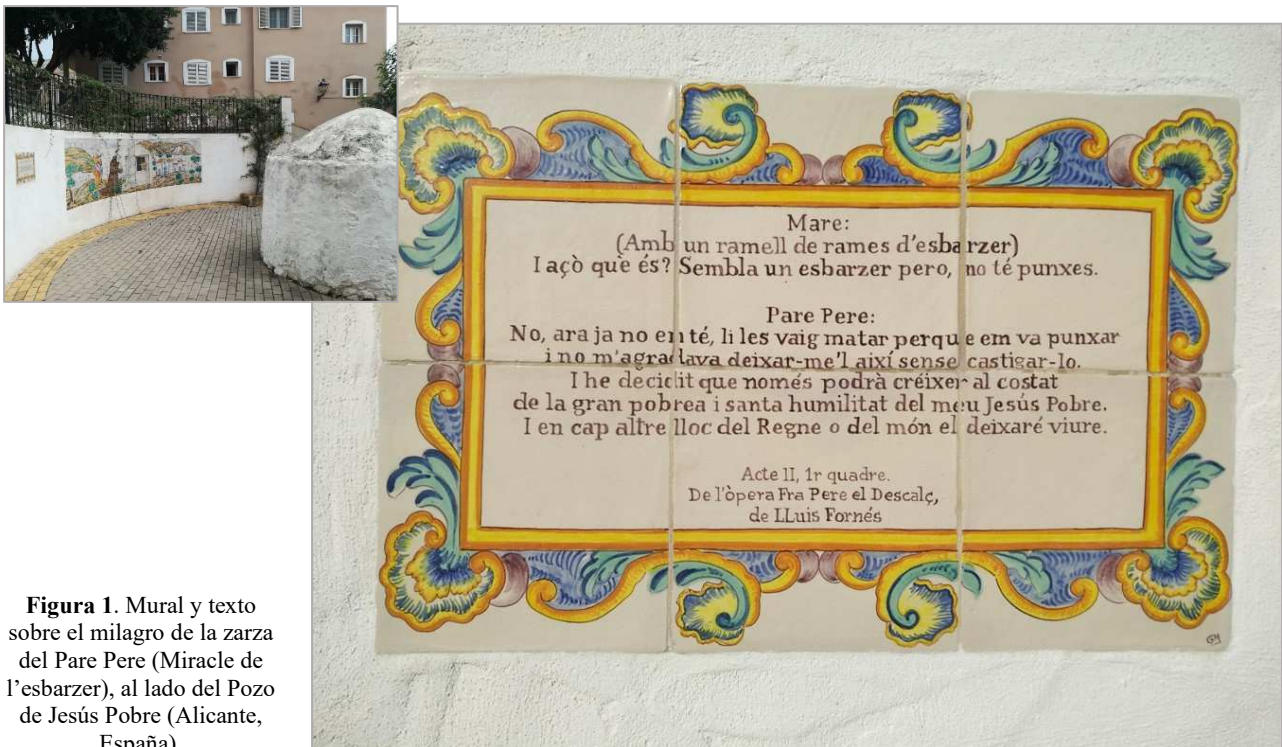 Mare:
(Amb un ramell de rames d'esbarzer)
I açò què és? Sembla un esbarzer pero, no té punxes.
Pare Pere:
No, ara ja no en té, li les vaig matar perque em va punxar
i no m'agradava deixar-me'l així sense castigar-lo.
I he decidit que només podrà créixer al costat
de la gran pobrea i santa humilitat del meu Jesús Pobre.
I en cap altre lloc del Regne o del món el deixaré viure.
Acte II, 1r quadre.
De l'òpera Fra Pere el Descalç,
de LLuis Fornés
GM
Figura 1. Mural y texto
sobre el milagro de la zarza
del Pare Pere (Miracle de
l'esbarzer), al lado del Pozo
de Jesús Pobre (Alicante,
España)